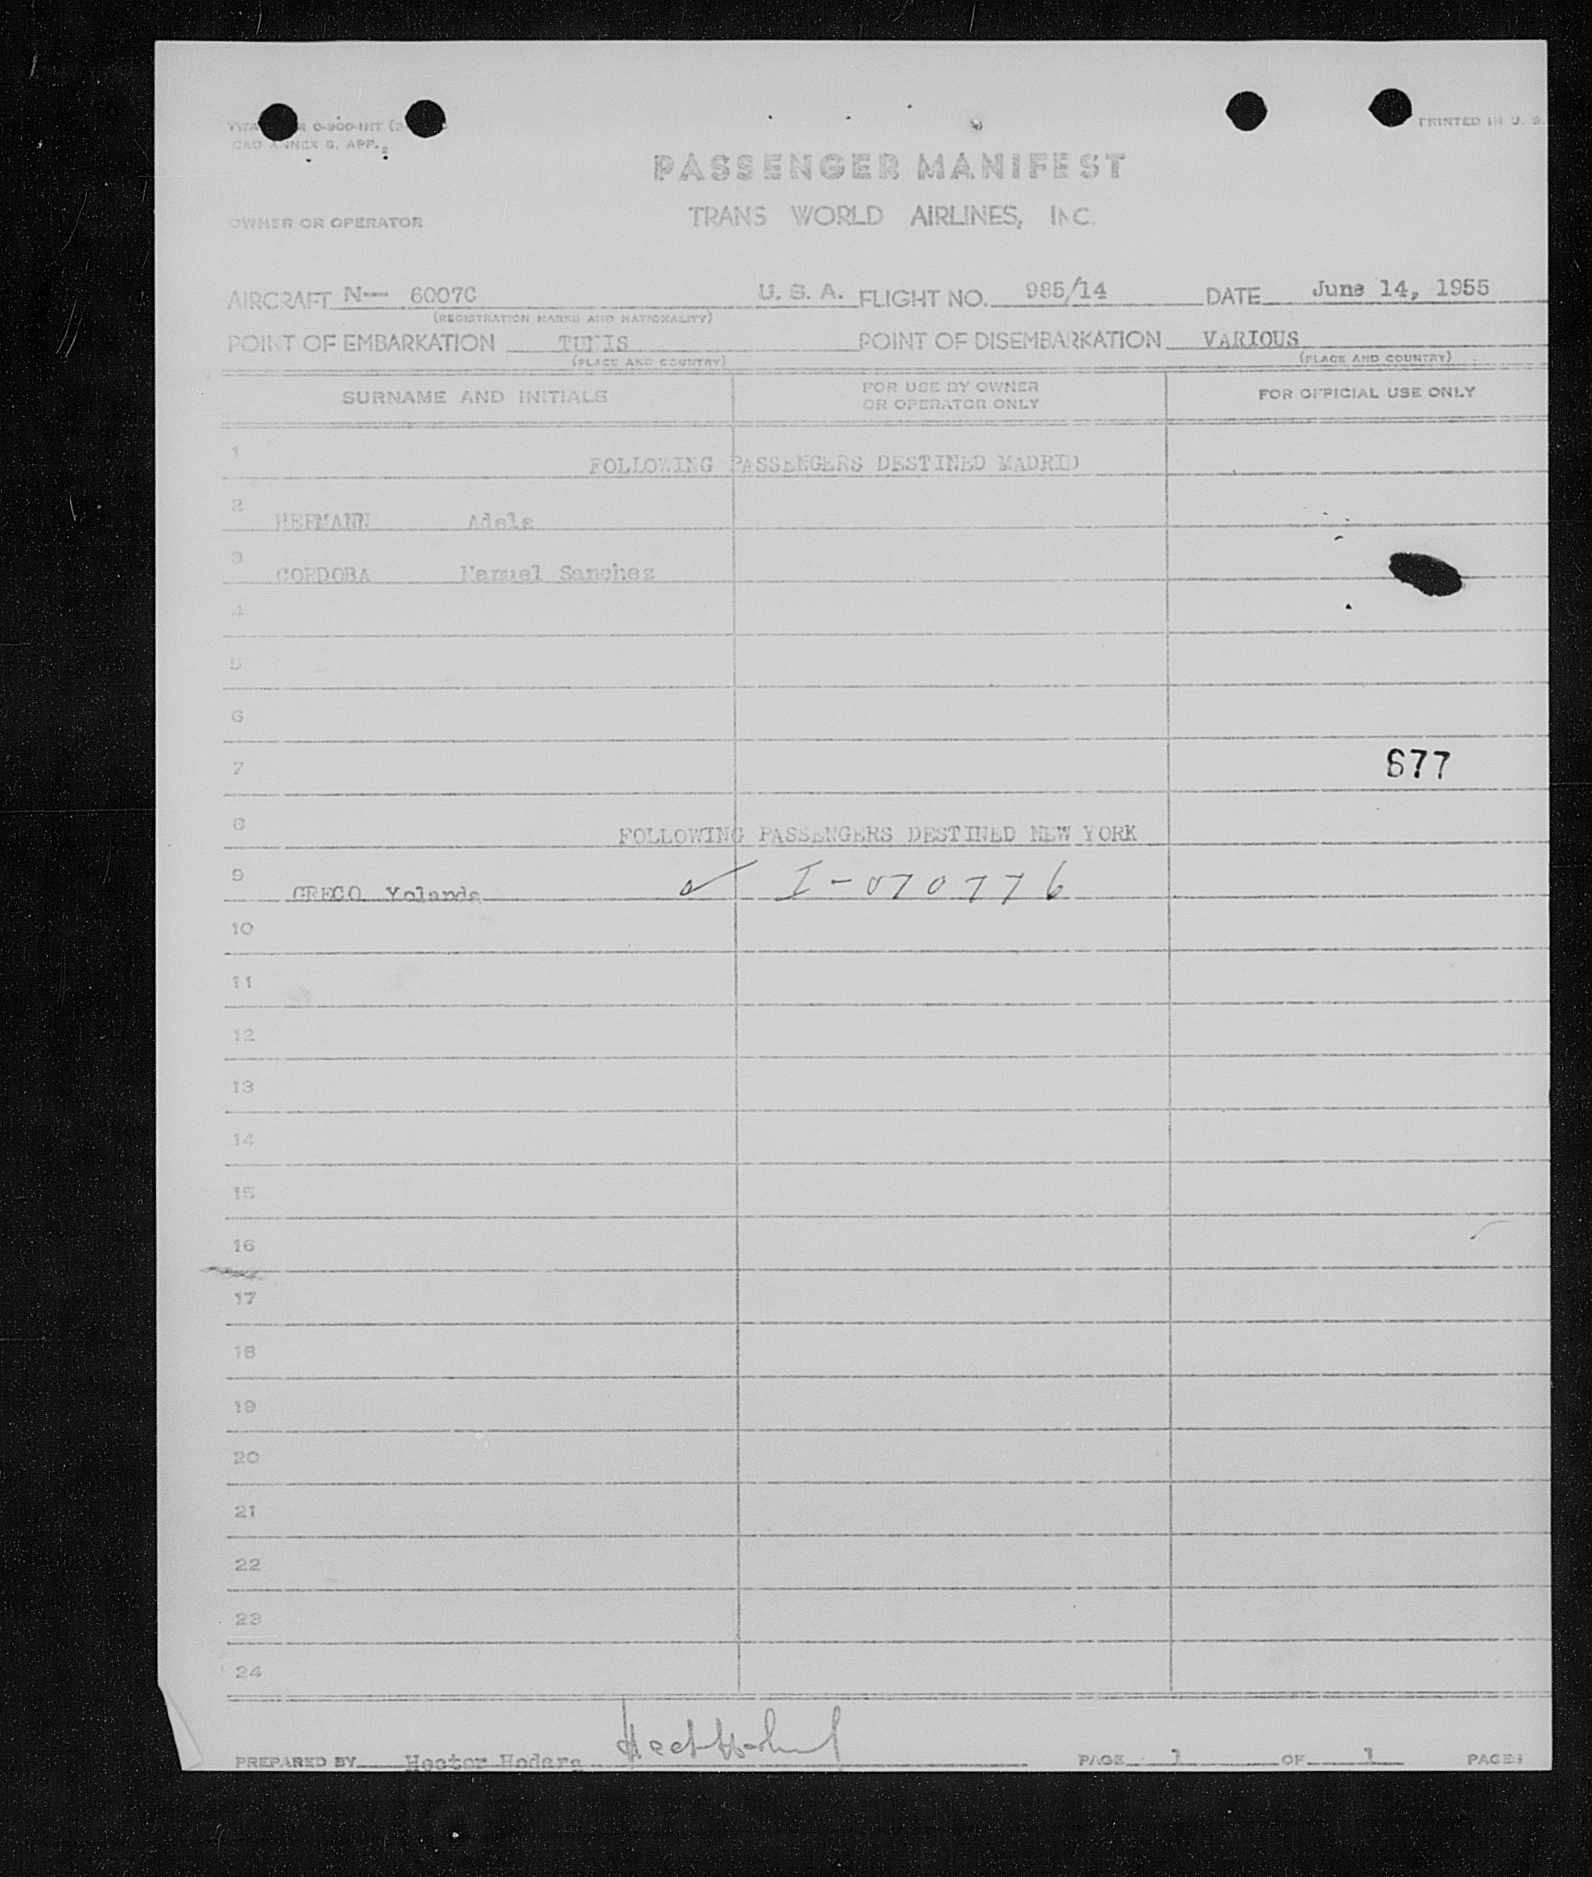 PRINTED IN U. S.
CAO ANNEX 9, APP. 2
PASSENGER MANIFEST
OWNER OR OPERATOR TRANS WORLD AIRLINES, INC.
AIRCRAFT N-- 6007C U. S. A. FLIGHT NO. 985/14 DATE June 14, 1955
(REGISTRATION MARKS AND NATIONALITY)
POINT OF EMBARKATION TUNIS POINT OF DISEMBARKATION VARIOUS
(PLACE AND COUNTRY) (PLACE AND COUNTRY)
SURNAME AND INITIALS FOR USE BY OWNER OR OPERATOR ONLY FOR OFFICIAL USE ONLY
1 FOLLOWING PASSENGERS DESTINED MADRID
2 HERMANN Adele
3 CORDOBA Manuel Sanchez
4
5
6
7 677
8 FOLLOWING PASSENGERS DESTINED NEW YORK
9 GRECO Yolanda ✓ I-070776
10
11
12
13
14
15
16
17
18
19
20
21
22
23
24
PREPARED BY Hector Hodara PAGE 1 OF 1 PAGES